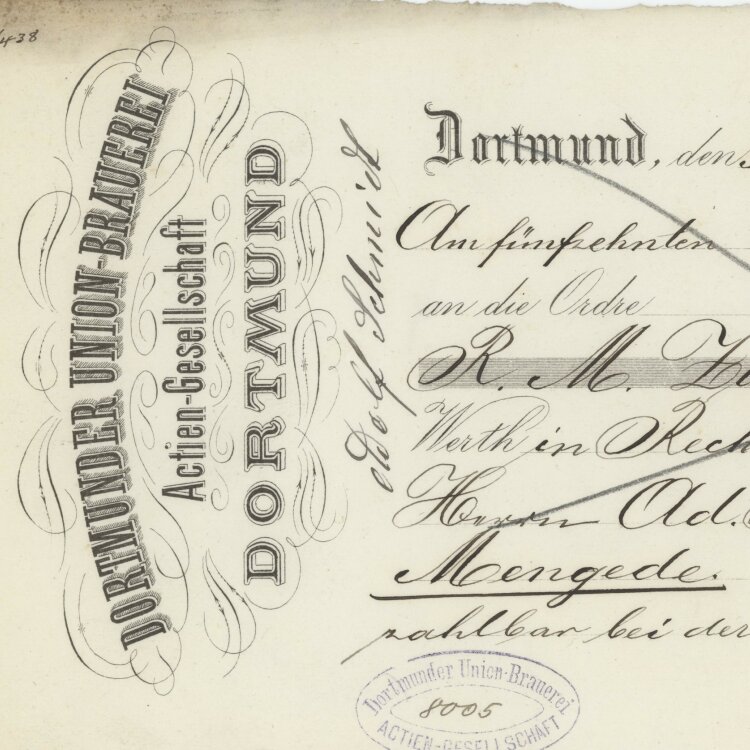 438
DORTMUNDER UNION-BRAUEREI
Actien-Gesellschaft
DORTMUND
Adolf Schmidt
Dortmund, den
Am fünfzehnten
an die Ordre
R. M.
Werth in Rech
Herrn Ad.
Mengede.
zahlbar bei der
Dortmunder Union-Brauerei
8005
ACTIEN-GESELLSCHAFT